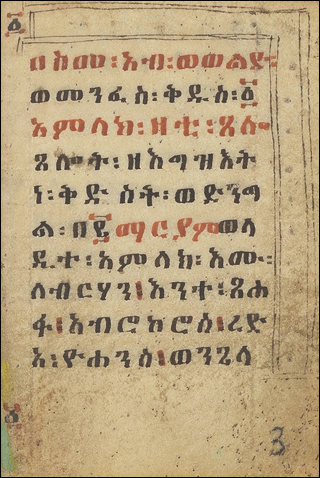 ፩
በስመ፡አብ፡ወወልድ፡
ወመንፈ ስ፡ቅዱስ፡፩
አምላክ፡ዘቲ፡ጸሎ
ጸሎት፡ዘእግዝእት
ነ፡ቅድ ስት፡ወድንግ
ል፡በ፪ ማርያም ወላ
ዲተ፡አምላክ፡እሙ፡
ለብርሃን፡እንተ፡ጸሐ
ፋ፡አብሮኮሮስ፡ረድ
አ፡ዮሐንስ፡ወንጌላ
3